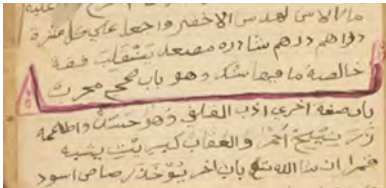 ماء الاس لهدس الاخضر واجعل علي كل عشرة
دراهم درهم شادره مصعد ينقلب فضة
خالصة ما فيها شك وهو باب صحيح مجرب
باب صفة اخري اذب القلقي وهو حسك واطعمه
زرنيخ احمر والعقاب كبريت يشبه
قمر ان شا الله تع باب اخر يوخذ رصاص اسود